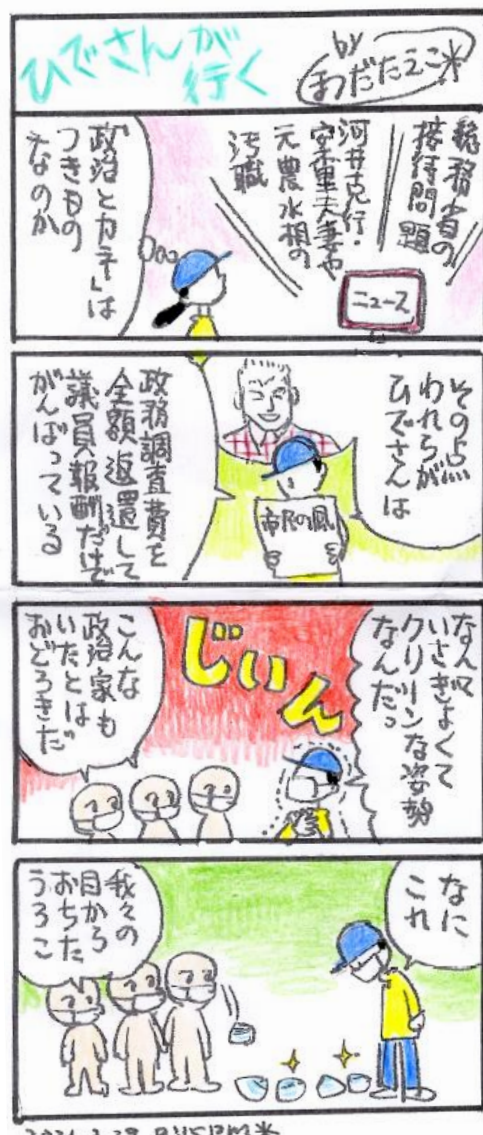 ひでさんが
行く
by
総務省の
接待問題
河井克行・
案里夫妻や
元農水相の
汚職
ニュース
「政治とカネ」は
つきもの
なのか
その点
われらが
ひでさんは
市民の風
政務調査費を
全額返還して
議員報酬だけで
がんばっている
なんて
いさぎよくて
クリーンな姿勢
なんだっ
じいん
こんな
政治家も
いたとは
おどろきだ
なに
これ
我々の
目から
おちた
うろこ